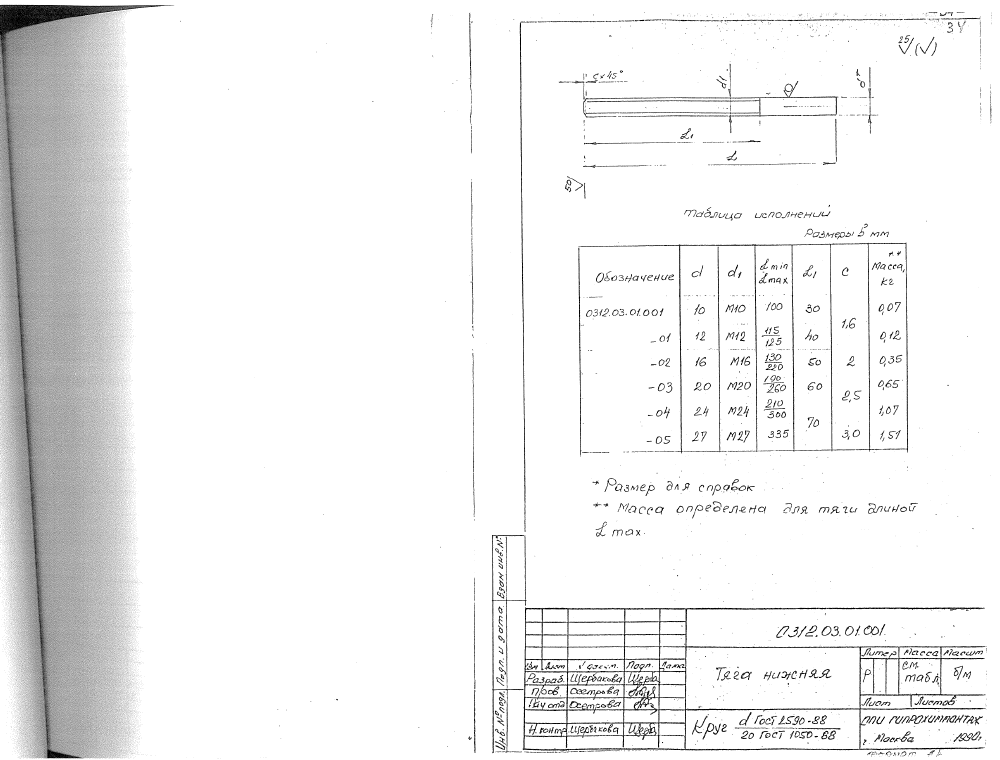 34
25 (√)
c×45°
d1
d*
L1
L
50
Таблица исполнений
Размеры в мм
Обозначение d d1 Lmin Lmax L1 c ** Масса, кг
0312.03.01.001 10 М10 100 30 1,6 0,07
-01 12 М12 115/125 40 0,12
-02 16 М16 130/220 50 2 0,35
-03 20 М20 190/260 60 2,5 0,65
-04 24 М24 210/300 70 1,07
-05 27 М27 335 3,0 1,51
* Размер для справок
** Масса определена для тяги длиной
L max.
Инв. № подл. Подп. и дата. Взам инв. №
0312.03.01.001.
Изм Лист № докум. Подп. Дата
Разраб. Щербакова
Пров. Осетрова
Нач отд Осетрова
Н.контр Щербакова
Тяга нижняя
Литер Масса Масшт
Р см. табл б/м
Лист Листов
Круг d ГОСТ 2590-88
20 ГОСТ 1050-88
ОПИ ГИПРОХИММОНТАЖ
г. Москва 1990г.